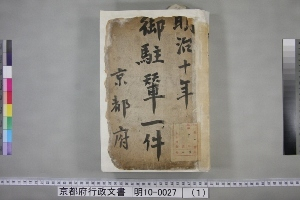 明治十年
御駐輦一件
京都府
京都府行政文書 明10-0027 (1)